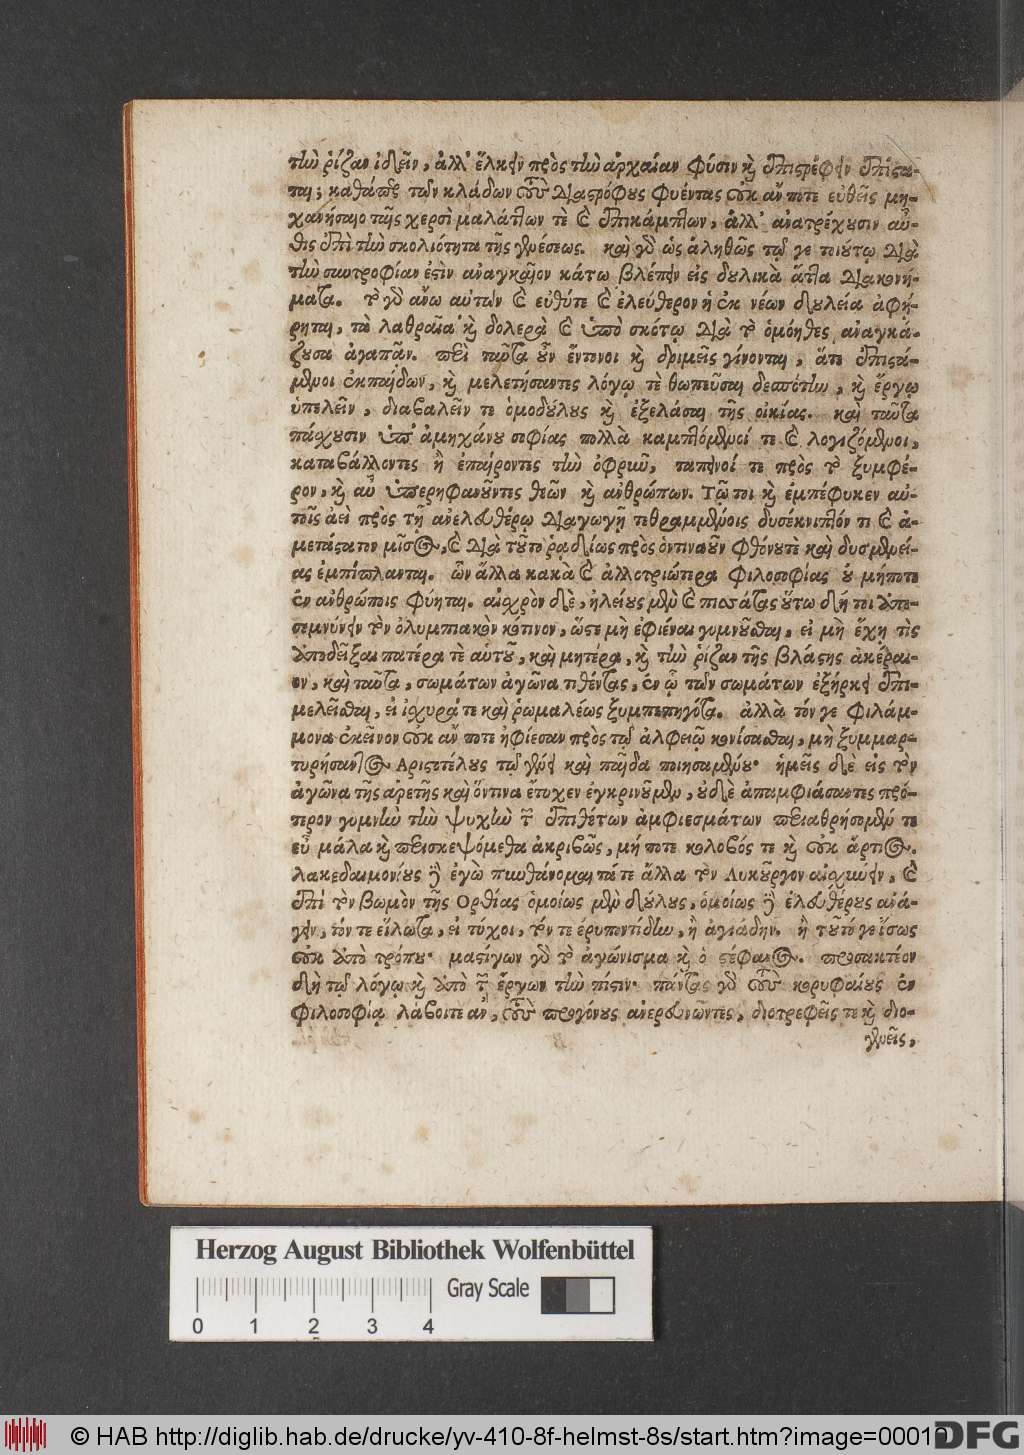 τὴν ῥίζαν ἰδεῖν, ἀλλ' ἕλκειν πρὸς τὴν ἀρχαίαν φύσιν καὶ ἐπιστρέφειν ἐπίστα-
ται; καθάπερ τῶν κλάδων τοὺς διαστρόφους φυέντας οὐκ ἄν ποτε εὐθεῖς μη-
χανήσαιο ταῖς χερσὶ μαλάττων τὲ καὶ ἐπικάμπτων, ἀλλ' ἀνατρέχουσιν αὖ-
θις ἐπὶ τὴν σκολιότητα τῆς γενέσεως. καὶ γὸ ὡς ἀληθῶς τῷ γε τοιούτῳ διὰ
τὴν συντροφίαν ἐστὶν ἀναγκαῖον κάτω βλέπειν εἰς δουλικὰ ἄττα διακονή-
ματα. τὸ γὸ ἄνω αὐτῶν καὶ εὐθύτε καὶ ἐλεύθερον ἡ ἐκ νέων δουλεία ἀφῄ-
ρηται, τὰ λαθραῖα καὶ δολερὰ καὶ ὑπὸ σκότῳ διὰ τὸ ὁμόηθες ἀναγκά-
ζουσα ἀγαπᾶν. περὶ ταῦτα οὖν ἔντονοι καὶ δριμεῖς γίνονται, ἅτε ἐπιστά-
μενοι ἐκπαίδων, καὶ μελετήσαντες λόγῳ τὲ θωπεῦσαι δεσπότην, καὶ ἔργῳ
ὑπελθεῖν, διαβαλεῖν τε ὁμοδούλους καὶ ἐξελάσαι τῆς οἰκίας. καὶ ταῦτα
πάσχουσιν ὑπ' ἀμηχάνου σοφίας πολλὰ καμπτόμενοί τε καὶ λογιζόμενοι,
καταβάλλοντες ἢ ἐπαίροντες τὴν ὀφρῦν, ταπεινοί τε πρὸς τὸ ξυμφέ-
ρον, καὶ αὖ ὑπερηφανοῦντες θεῶν καὶ ἀνθρώπων. Τῷ τοι καὶ ἐμπέφυκεν αὐ-
τοῖς ἀεὶ πρὸς τῇ ἀνελευθέρῳ διαγωγῇ τεθραμμένοις δυσέκνιπτόν τι καὶ ἀ-
μετάστατον μῖσος, καὶ διὰ τοῦτο ῥᾳδίως πρὸς ὁντιναοῦν φθόνουτὲ καὶ δυσμενεί-
ας ἐμπίπλανται. ὧν ἄλλα κακὰ καὶ ἀλλοτριώτερα φιλοσοφίας οὐ μήποτε
ἐν ἀνθρώποις φύηται. αἰσχρὸν δὲ, ἠλείους μὲν καὶ πισάτας οὕτω δή τοι ἀπο-
σεμνύνειν τὸν ὀλυμπιακὸν κότινον, ὥστε μὴ ἐφιέναι γυμνοῦσθαι, εἰ μὴ ἔχῃ τὶς
ἀποδεῖξαι πατέρα τὲ αὑτοῦ, καὶ μητέρα, καὶ τὴν ῥίζαν τῆς βλάστης ἀκέραι-
ον, καὶ ταῦτα, σωμάτων ἀγῶνα τιθέντας, ἐν ᾧ τῶν σωμάτων ἐξήρκει ἐπι-
μελεῖσθαι, εἰ ἰσχυρά τε καὶ ῥωμαλέως ξυμπεπηγότα. ἀλλὰ τόν γε Φιλάμ-
μονα ἐκεῖνον οὐκ ἄν ποτε ἠφίεσαν πρὸς τῷ ἀλφειῷ κονίσασθαι, μὴ ξυμμαρ-
τυρήσαντος Αριστοτέλους τῷ γένει καὶ παῖδα ποιησαμένου· ἡμεῖς δὲ εἰς τὸν
ἀγῶνα τῆς ἀρετῆς καὶ ὅντινα ἔτυχεν ἐγκρινοῦμεν, οὐδὲ ἀπαμφιάσαντες πρό-
τερον γυμνὴν τὴν ψυχὴν τῶν ἐπιθέτων ἀμφιεσμάτων περιαθρήσομέν τε
εὖ μάλα καὶ περισκεψόμεθα ἀκριβῶς, μή ποτε κολοβός τε καὶ οὐκ ἄρτιος.
λακεδαιμονίους δὲ ἐγὼ πυνθάνομαι τά τε ἄλλα τὸν Λυκοῦργον αἰσχύνειν, καὶ
ἐπὶ τὸν βωμὸν τῆς Ορθίας ὁμοίως μὲν δούλους, ὁμοίως δὲ ἐλευθέρους ἀνά-
γειν, τόν τε εἵλωτα, εἰ τύχοι, τόν τε εὐρυποντίδην, ἢ ἀγιάδην. ἢ τοῦτό γε ἴσως
οὐκ ἀπὸ τρόπου· μαστίγων γὸ τὸ ἀγώνισμα καὶ ὁ στέφανος. προσακτέον
δὴ τῷ λόγῳ καὶ ἀπὸ τῶν ἔργων τὴν πίστιν· πάντας γὸ τοὺς κορυφαίους ἐν
φιλοσοφίᾳ λάβοιτε ἂν, τοὺς προγόνους ἀνερευνῶντες, διοτρεφεῖς τε καὶ διο-
γενεῖς,
Herzog August Bibliothek Wolfenbüttel
Gray Scale
0 1 2 3 4
© HAB http://diglib.hab.de/drucke/yv-410-8f-helmst-8s/start.htm?image=00010
DFG